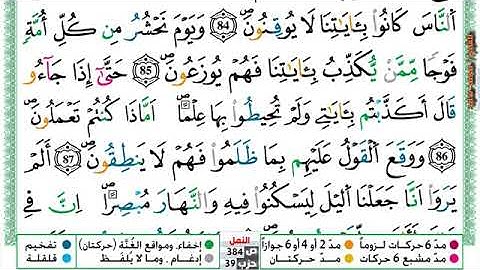 اَلنَّاسَ كَانُواْ بِـَٔايَٰتِنَا لَا يُوقِنُونَۖ 84 وَيَوْمَ نَحْشُرُ مِن كُلِّ أُمَّةٖ
فَوْجاٗ مِّمَّنْ يُّكَذِّبُ بِـَٔايَٰتِنَا فَهُمْ يُوزَعُونَۖ 85 حَتَّىٰٓ إِذَا جَآءُو
قَالَ أَكَذَّبْتُم بِـَٔايَٰتِے وَلَمْ تُحِيطُواْ بِهَا عِلْماًۖ اَمَّاذَا كُنتُمْ تَعْمَلُونَۖ
86 وَوَقَعَ اَلْقَوْلُ عَلَيْهِم بِمَا ظَلَمُواْ فَهُمْ لَا يَنطِقُونَۖ 87 أَلَمْ
يَرَوَاْ اَنَّا جَعَلْنَا اَليْلَ لِيَسْكُنُواْ فِيهِ وَالنَّهَارَ مُبْصِراًۖ اِنَّ فِے
مدّ 6 حركات لزوماً مدّ 2 أو 4 أو 6 جوازاً النمل إخفاء، ومواقع الغُنَّة (حركتان) تفخيم
مدّ مشبع 6 حركات مدّ حركتان ص 384 حزب 39 إدغام، وما لا يُلفَظ قلقلة